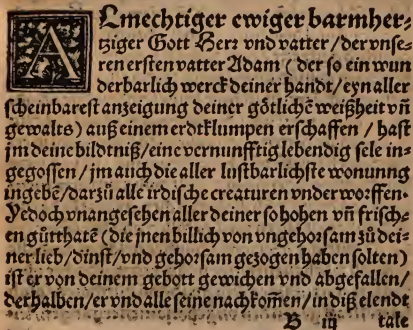 ALmechtiger ewiger barmher-
tziger Gott Herꝛ vnd vatter / der vnse-
ren ersten vatter Adam ( der so ein wun
derbarlich werck deiner handt / eyn aller
scheinbarest anzeigung deiner götlichẽ weißheit vñ
gewalts) auß einem erdtklumpen erschaffen / hast
jm deine bildtniß / eine vernunfftig lebendig sele in-
gegossen / jm auch die aller lustbarlichste wonunng
ingebẽ / darzů alle irdische creaturen vnderwoꝛffen.
Yedoch vnangesehen aller deiner so hohen vñ frisch-
en gůtthatẽ (die jnen billich von vngehoꝛsam zů dei-
ner lieb / dinst / vnd gehoꝛsam gezogen haben solten)
ist er von deinem gebott gewichen vnd abgefallen /
derhalben / er vnd alle seine nachkom̃en / in diß elendt
B iij tale